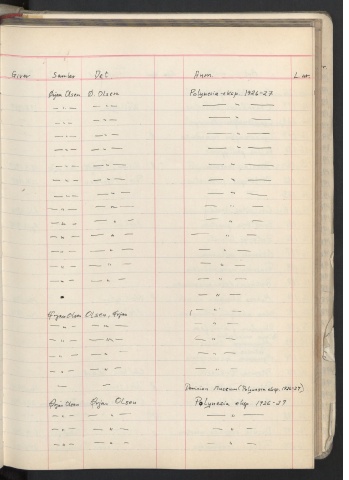 Giver Samler Det Anm. L. nr.
Ørjan Olsen Ø. Olsen Polynesia-eksp. 1926-27
— " — — " — — " —
— " — — " — — " —
— " — — " — — " —
— " — — " — — " —
— " — — " — — " —
— " — — " — — " —
— " — — " — — " —
— " — — " — — " —
— " — — " — — " —
— " — — " — — " —
— " — — " — — " —
— " — — " — — " —
— " — — " — — " —
" — " —
Ørjan Olsen Olsen, Ørjan — " —
— " — — " — — " —
— " — — " — — " —
— " — — " — — " —
— " — — " — — " —
— — Dominion Museum (Polynesia eksp. 1926-27)
Ørjan Olsen Ørjan Olsen Polynesia eksp. 1926-27
— " — — " — — " —
— " — — " — — " —
— " — — " — — " —